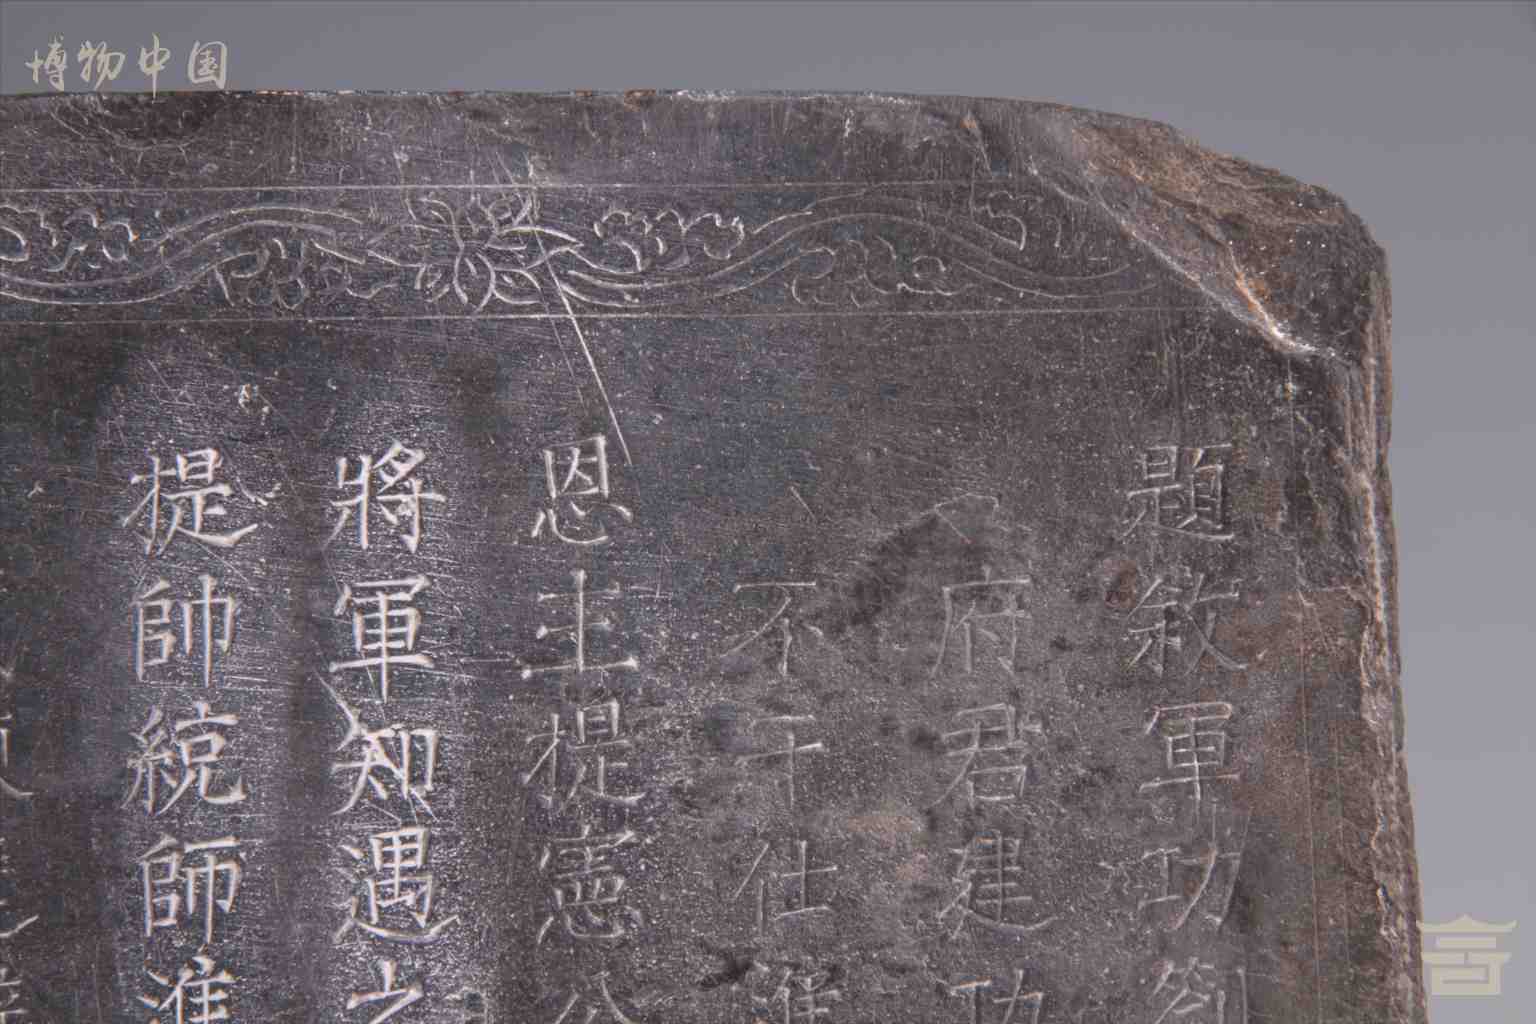 博物中国
題敘軍功
府君建功
不干仕
恩主提憲公
將軍知遇之
提帥統師